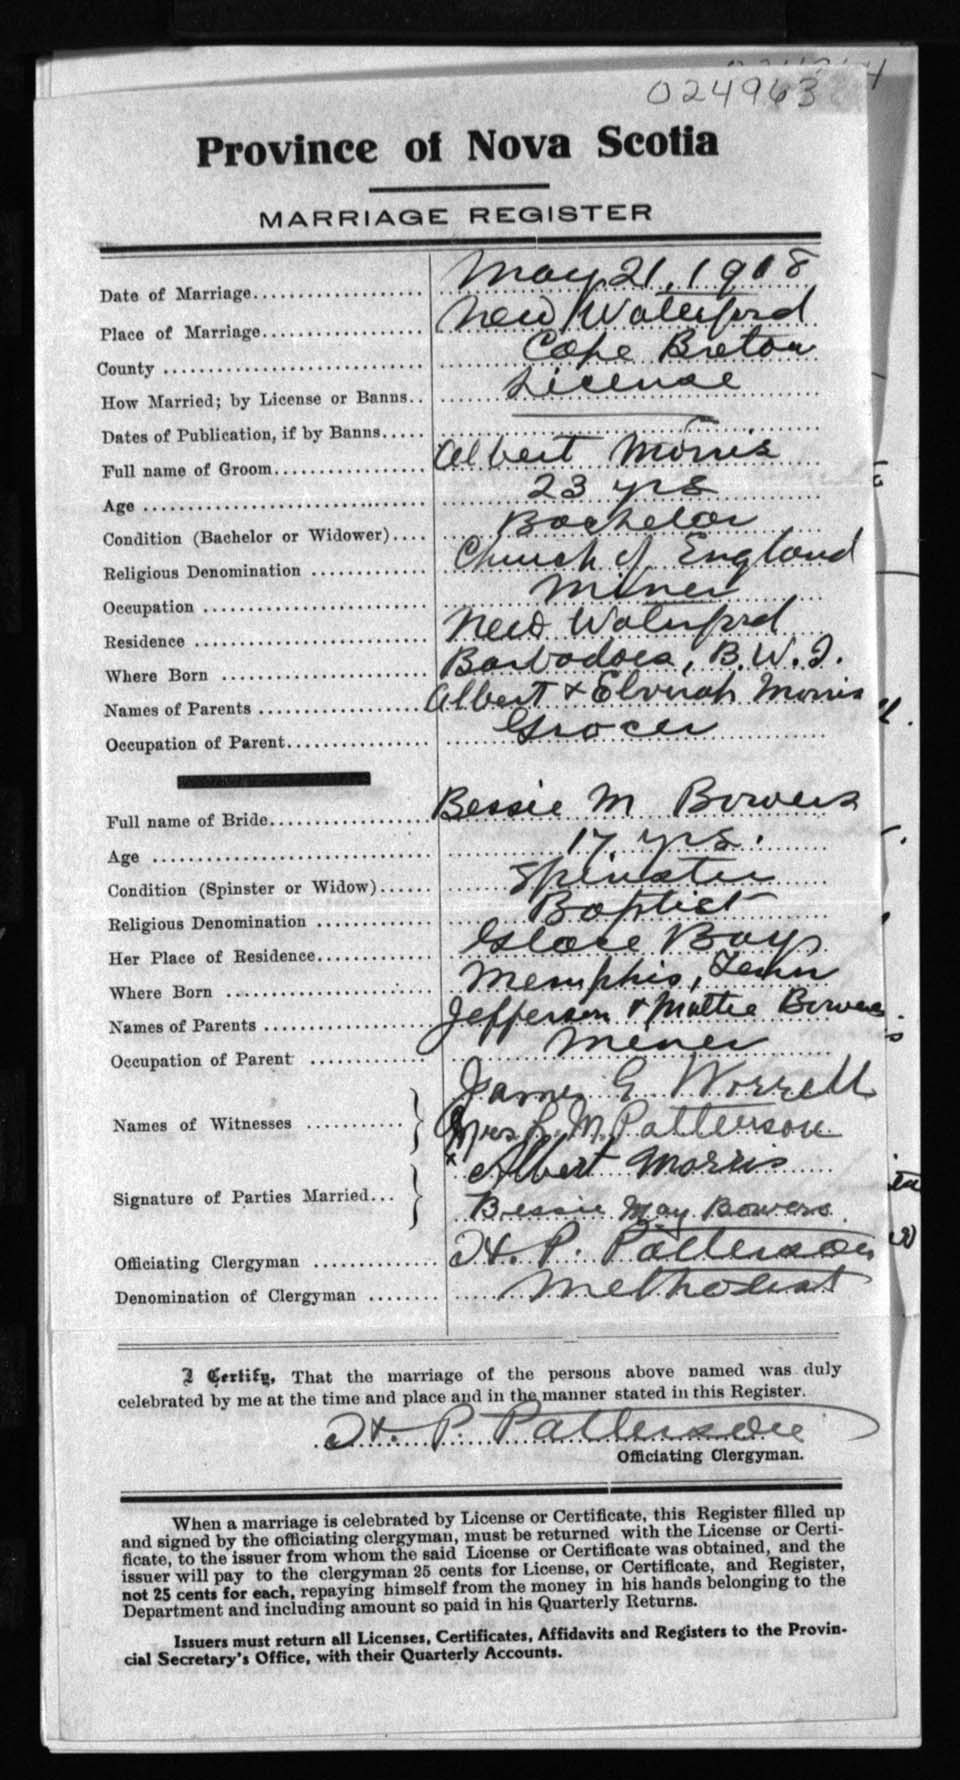 024963
Province of Nova Scotia
MARRIAGE REGISTER
Date of Marriage.................... May 21, 1918
Place of Marriage................... New Waterford
County .............................. Cape Breton
How Married; by License or Banns.. License
Dates of Publication, if by Banns.....
Full name of Groom.................. Albert Morris
Age ................................ 23 yrs
Condition (Bachelor or Widower).... Bachelor
Religious Denomination ............. Church of England
Occupation ......................... Miner
Residence .......................... New Waterford
Where Born ......................... Barbadoes, B.W.I.
Names of Parents ................... Albert & Elvirah Morris
Occupation of Parent................ Grocer
Full name of Bride.................. Bessie M Bowers
Age ................................ 17 yrs.
Condition (Spinster or Widow)...... Spinster
Religious Denomination ............. Baptist
Her Place of Residence............. Glace Bay
Where Born ......................... Memphis, Tenn
Names of Parents ................... Jefferson & Mattie Bowers
Occupation of Parent ............... Miner
James E. Worrell
Names of Witnesses ........... Mrs L. M. Patterson
x Albert Morris
Signature of Parties Married... Bessie May Bowers
Officiating Clergyman .............. H. P. Patterson
Denomination of Clergyman ........ Methodist
I Certify, That the marriage of the persons above named was duly
celebrated by me at the time and place and in the manner stated in this Register.
H. P. Patterson
Officiating Clergyman.
When a marriage is celebrated by License or Certificate, this Register filled up
and signed by the officiating clergyman, must be returned with the License or Certi-
ficate, to the issuer from whom the said License or Certificate was obtained, and the
issuer will pay to the clergyman 25 cents for License, or Certificate, and Register,
not 25 cents for each, repaying himself from the money in his hands belonging to the
Department and including amount so paid in his Quarterly Returns.
Issuers must return all Licenses, Certificates, Affidavits and Registers to the Provin-
cial Secretary's Office, with their Quarterly Accounts.